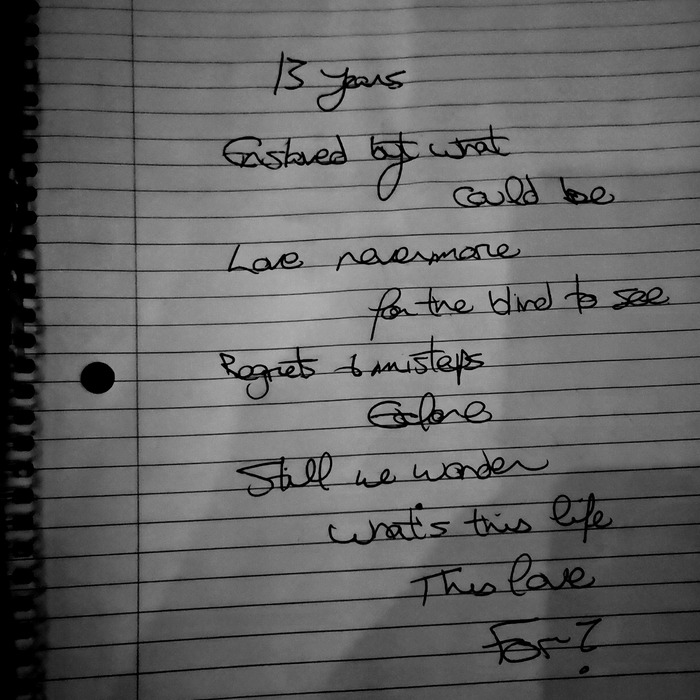 13 years
Enslaved by what
could be
Love nevermore
for the blind to see
Regrets & missteps
Galore
Still we wonder
what's this life
This love
For?